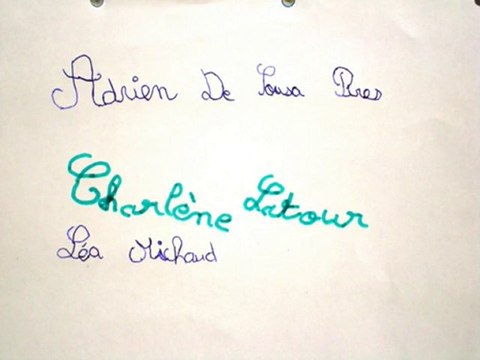 Adrien De Sousa Pires
Charlène Latour
Léa Michaud